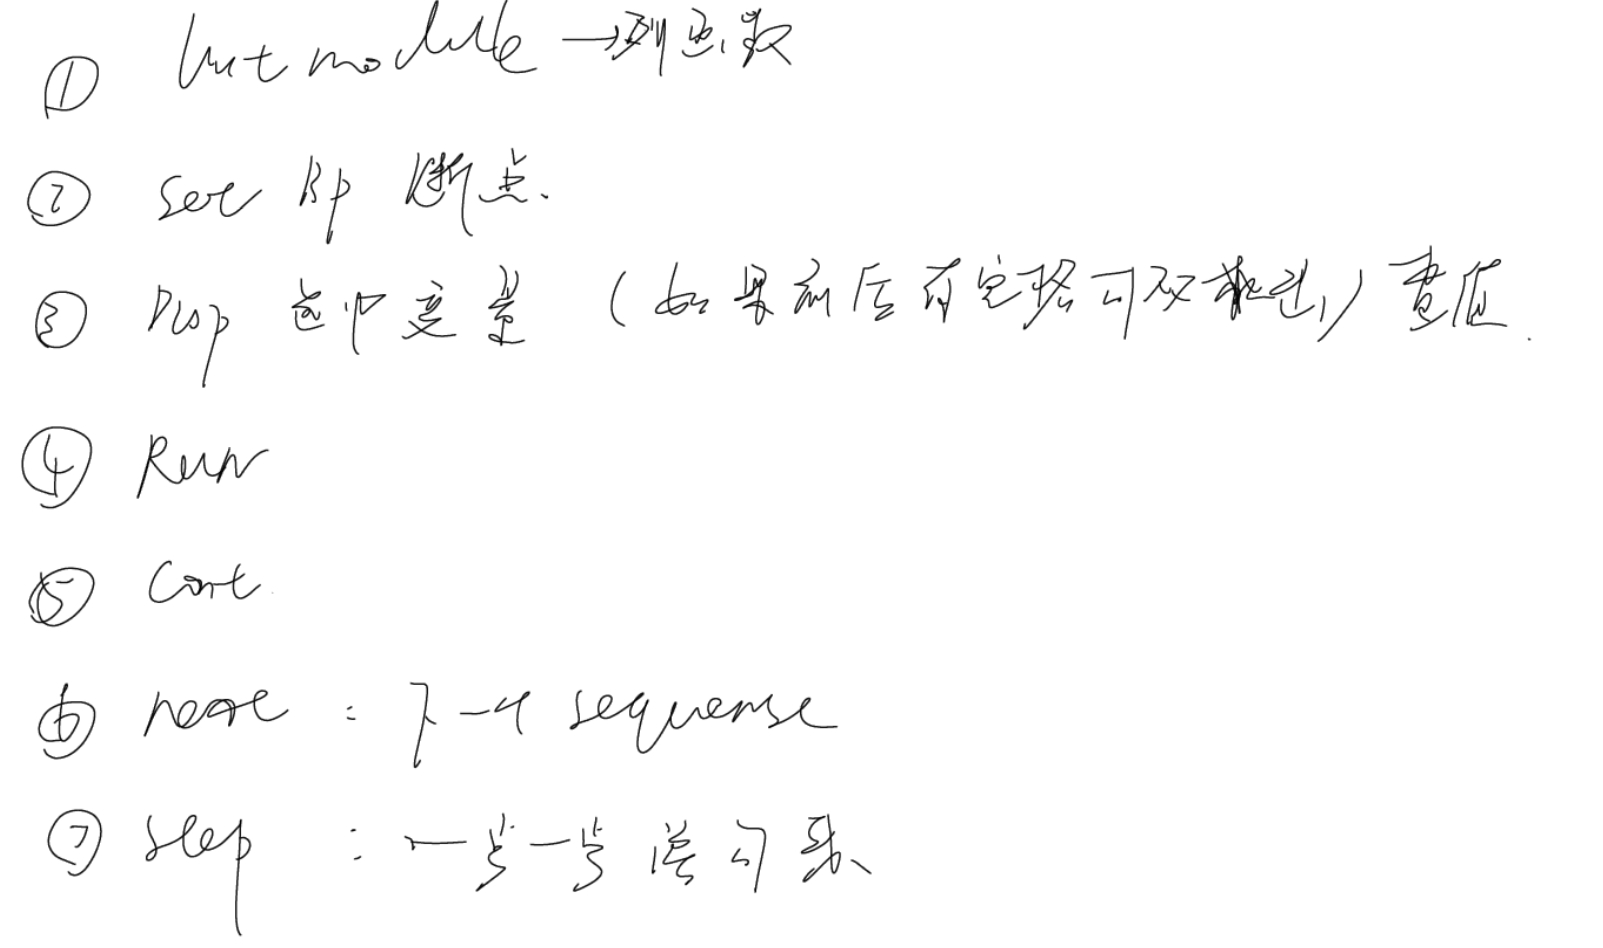 ① Init module →列函数
② Set Bp 断点.
③ Disp 选中变量 (如果前后有空格可双击进) 查值.
④ Run
⑤ Cont
⑥ next : 下一个 sequense
⑦ step : 一步一步